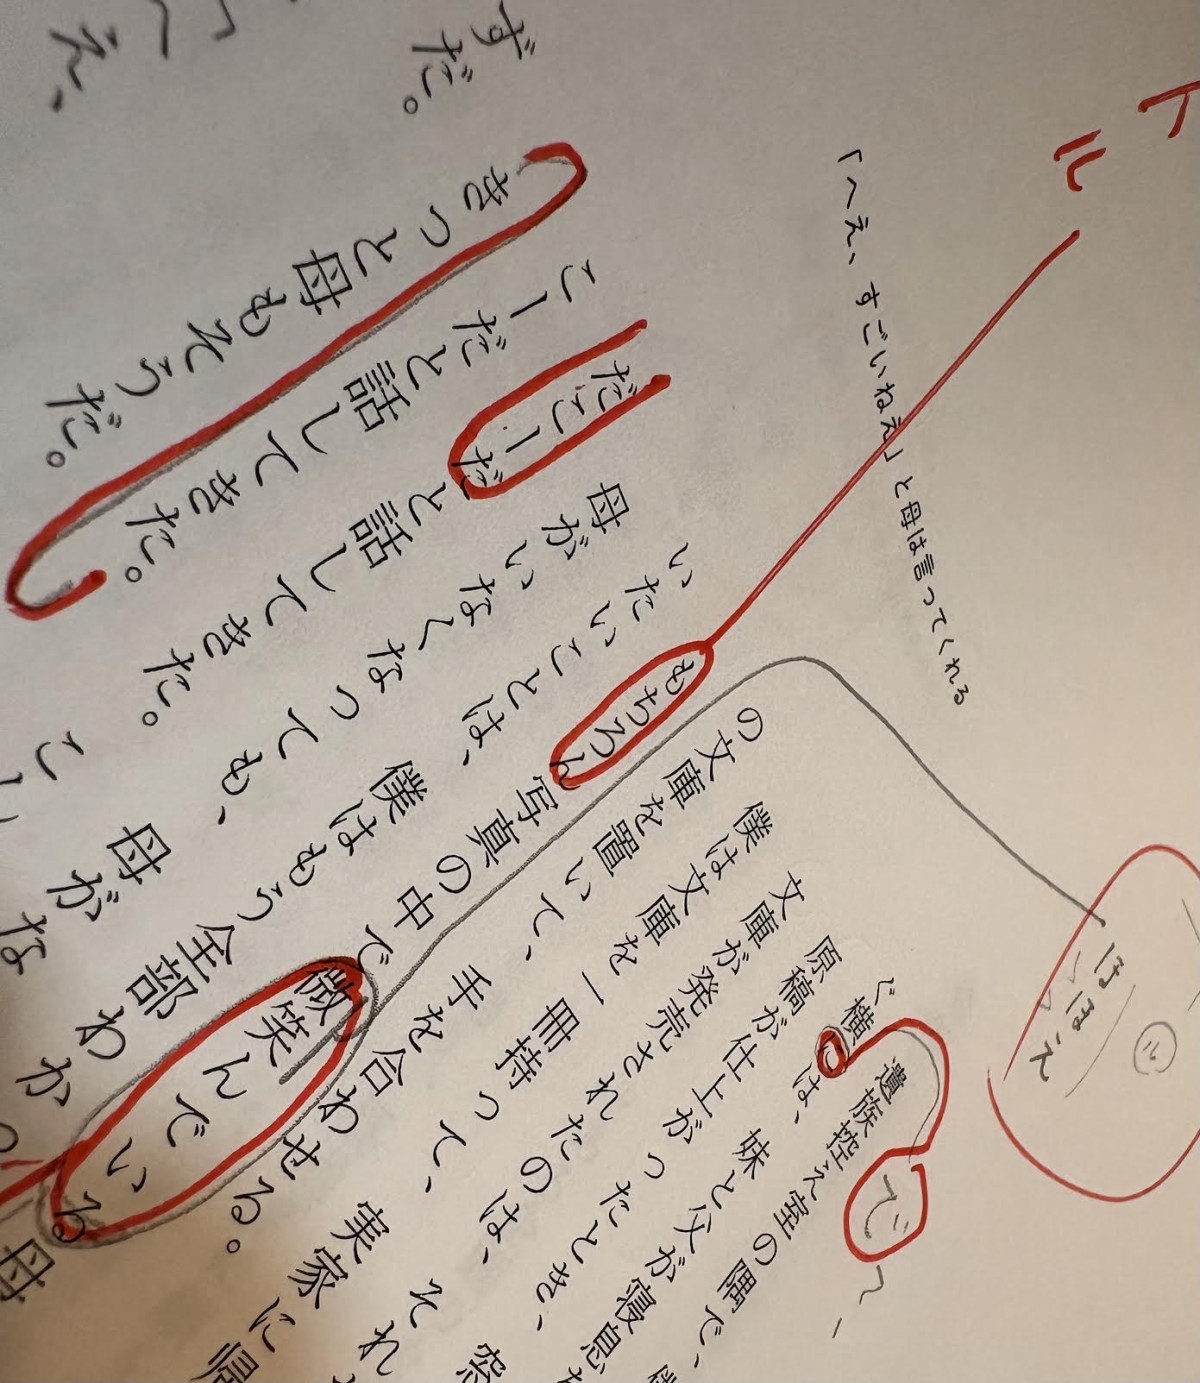 トル
「へえ、すごいねえ」と母は言ってくれる
ほほえ
で
遺族控え室の隅で、
ぐ横には、妹と父が寝息を
原稿が仕上がったとき、
文庫が発売されたのは、それ
僕は文庫を一冊持って、実家に帰
の文庫を置いて、手を合わせる。
もちろん写真の中で微笑んでいる。母
いたいことは、僕はもう全部わかっ
母がいなくなっても、母がな
だこーだと話してきた。こ
こーだと話してきた。
きっと母もそうだ。
ずだ。
え、